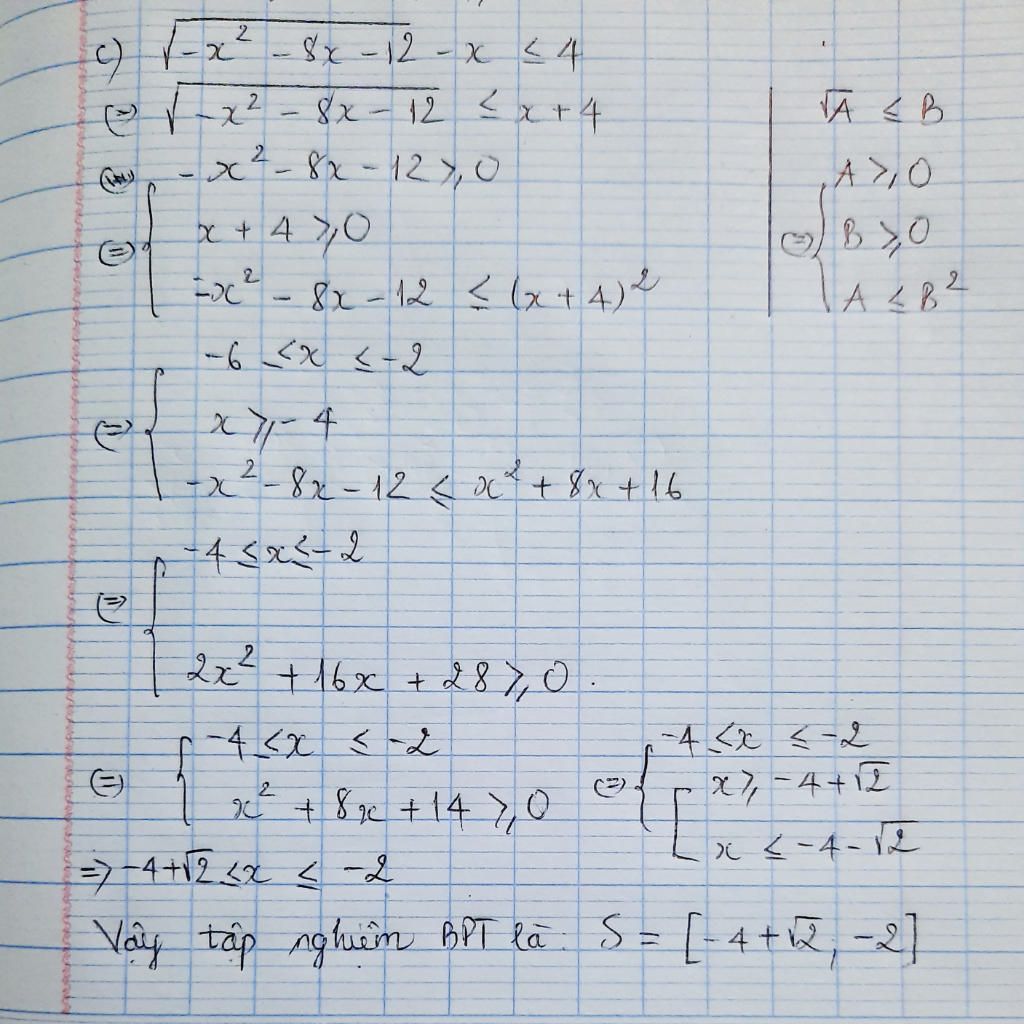 c) √(-x² - 8x - 12) - x ≤ 4
⇔ √(-x² - 8x - 12) ≤ x + 4
-x² - 8x - 12 ≥ 0
⇔ { x + 4 ≥ 0
-x² - 8x - 12 ≤ (x + 4)²
√A ≤ B
A ≥ 0
⇔ { B ≥ 0
A ≤ B²
-6 ≤ x ≤ -2
⇔ { x ≥ -4
-x² - 8x - 12 ≤ x² + 8x + 16
-4 ≤ x ≤ -2
⇔ {
2x² + 16x + 28 ≥ 0.
-4 ≤ x ≤ -2
⇔ {
x² + 8x + 14 ≥ 0
-4 ≤ x ≤ -2
⇔ { [ x ≥ -4 + √2
x ≤ -4 - √2
⇒ -4 + √2 ≤ x ≤ -2
Vậy tập nghiệm BPT là: S = [-4 + √2, -2]